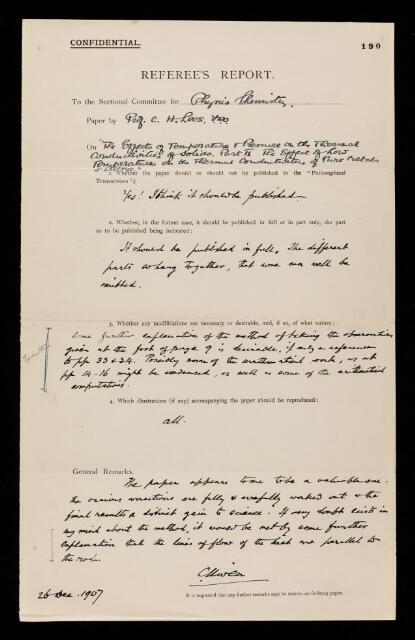 CONFIDENTIAL.
190
REFEREE'S REPORT.
To the Sectional Committee for Physics Chemistry.
Paper by Prof. C. H. Lees.
On "The Effects of Temperature & Pressure on the Thermal
Conductivities of Solids. Part II The Effect of Low
Temperatures on the Thermal Conductivities of Pure Metals
& Alloys"
1. Whether the paper should or should not be published in the "Philosophical
Transactions":
Yes! I think it should be published
2. Whether, in the former case, it should be published in full or in part only, the part
so to be published being indicated:
It should be published in full. The different
parts so hang together, that none can well be
omitted.
3. Whether any modifications are necessary or desirable, and, if so, of what nature:
Some further explanation of the method of taking the observations
given at the foot of page 9 is desirable, if only a reference
to pp 33 & 34. Possibly some of the mathematical work, as at
pp 14-16 might be condensed, as well as some of the arithmetical
computations.
4. Which illustrations (if any) accompanying the paper should be reproduced:
all.
General Remarks.
The paper appears to me to be a valuable one.
The various corrections are fully & carefully worked out & the
final results a distinct gain to science. If any doubt exists in
my mind about the method, it would be met by some further
explanation that the lines of flow of the heat are parallel to
the rod.
26 Dec. 1907
It is requested that any further remarks may be written on foolscap paper.